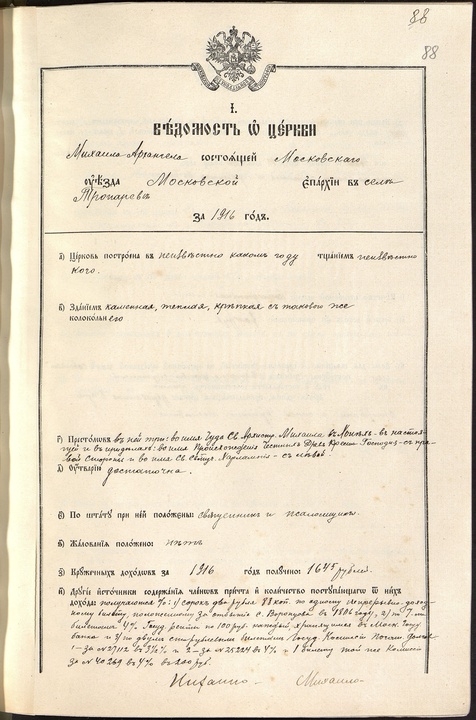 88
88
I.
ВѢДОМОСТЬ Ѿ ЦЕРКВИ
Михаило Архангела состоѧщей Московскаго
оуѣзда Московской епархіи въ селѣ
Тропаревѣ
за 1916 годъ.
а) Церковь построена въ неизвѣстно какомъ году тщаніемъ неизвѣстно
кого.
в) Зданіемъ каменная, теплая, крѣпкая съ таковою же
колокольнею
г) Престоловъ въ ней три: во имя Чуда Св. Архистр. Михаила въ Хонѣхъ - въ настоя-
щей и въ придѣлахъ: во имя Происхожденія Честныхъ Древъ Креста Господня - съ пра-
вой стороны и во имя Св. Харлампія - съ лѣвой
д) Оутварию достаточна.
е) По штату при ней положены: священникъ и псаломщикъ.
ѕ) Жалованія положено: нѣтъ
з) Кружечныхъ доходовъ за 1916 годъ получено: 1645 рублей.
и) Другіе источники содержаніѧ членовъ причта и количество поступающаго ѿ нихъ
дохода: получаются %: 1) сорокъ два рубля 88 коп. по одному непрерывно-доход-
ному билету, положенному за отнятіе с. Воронцова въ 188 году, 2) по
билетамъ 4% Госуд. ренты на 100 руб. каждый, хранящихся въ Моск. Госуд.
банка и 3) по двумъ сторублевымъ билетамъ Госуд. Комиссіи Погаш. Долговъ
1 - за № 27112 въ 3½% и 2 - за № 25224 въ 4% - 1 билету той же Комиссіи
за № 40269 въ 4% въ 200 руб.
Михаило-